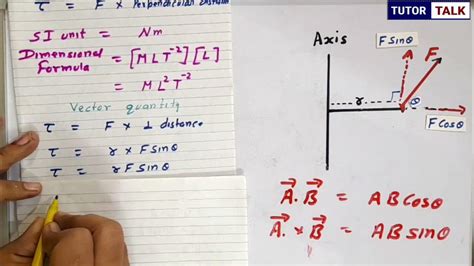 τ = F × Perpendicular Distance
SI unit = Nm
Dimensional Formula = [MLT⁻²][L]
= ML²T⁻²
Vector quantity
τ = F × ⊥ distance
τ = r × F sinθ
τ = r F sinθ
TUTOR TALK
Axis
F sinθ
F
r
θ
F cosθ
A⃗ . B⃗ = AB cosθ
A⃗ × B⃗ = AB sinθ